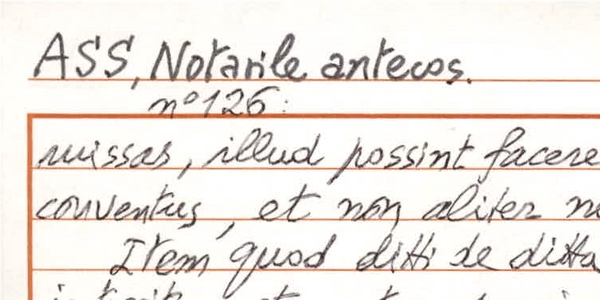 ASS, Notarile antecos.
n° 126:
missas, illud possint facere
conventus, et non aliter
Item quod ditti de ditta